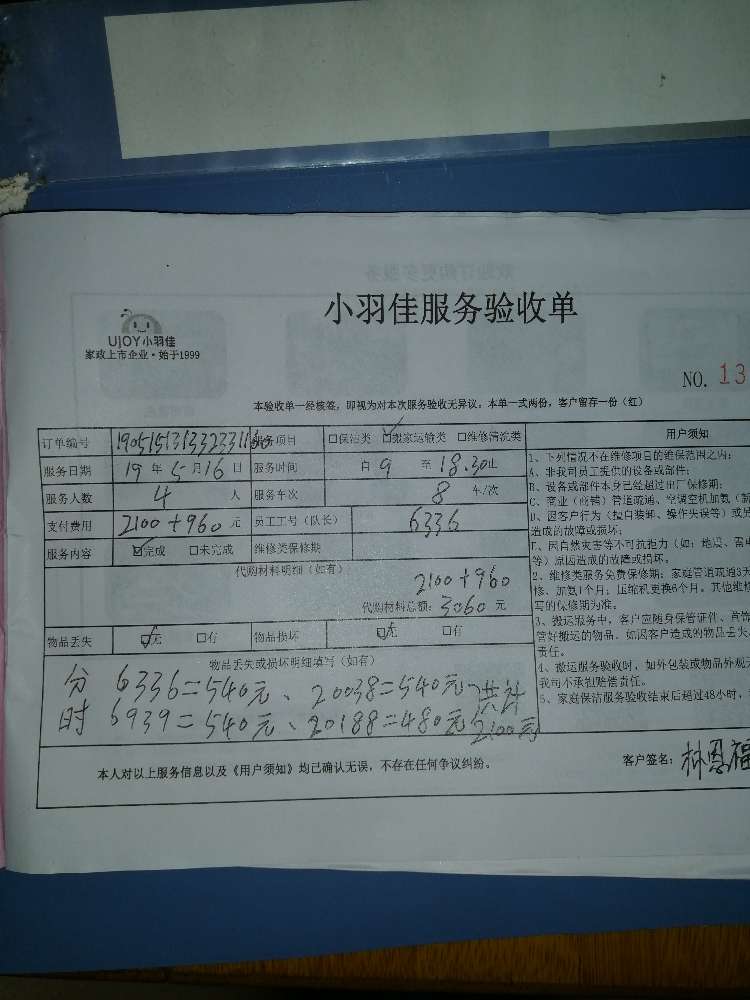 小羽佳服务验收单
UJOY小羽佳
家政上市企业·始于1999
NO. 13
本验收单一经核签，即视为对本次服务验收无异议。本单一式两份，客户留存一份（红）
订单编号 服务项目 □保洁类 ☑搬家运输类 □维修清洗类
服务日期 19年5月16日 服务时间 自9至18.30止
服务人数 4人 服务车次 8车/次
支付费用 2100+960元 员工工号（队长） 6336
服务内容 ☑完成 □未完成 维修类保修期
代购材料明细（如有）
2100+960
代购材料总额：3060元
物品丢失 ☑无 □有 物品损坏 ☑无 □有
物品丢失或损坏明细填写（如有）
分 6336=540元、20038=540元 共计
时 6939=540元、20188=480元 2100元
本人对以上服务信息以及《用户须知》均已确认无误，不存在任何争议纠纷。
客户签名：林恩福
用户须知
1、下列情况不在维修项目的维保范围之内：
A、非我司员工提供的设备或部件；
B、设备或部件本身已经超过出厂保修期；
C、商业（商铺）管道疏通、空调空机加氨（
D、因客户行为（擅自装卸、操作失误等）或
造成的故障或损坏；
E、因自然灾害等不可抗拒力（如：地震、雷
等）原因造成的故障或损坏。
2、维修类服务免费保修期：家庭管道疏通3天
修、加氨1个月；压缩机更换6个月。其他维修
写的保修期为准。
3、搬运服务中，客户应随身保管证件、首饰
管好搬运的物品。如因客户造成的物品丢失
责任。
4、搬运服务验收时，如外包装或物品外观
我司不承担赔偿责任。
5、家庭保洁服务验收结束后超过48小时，